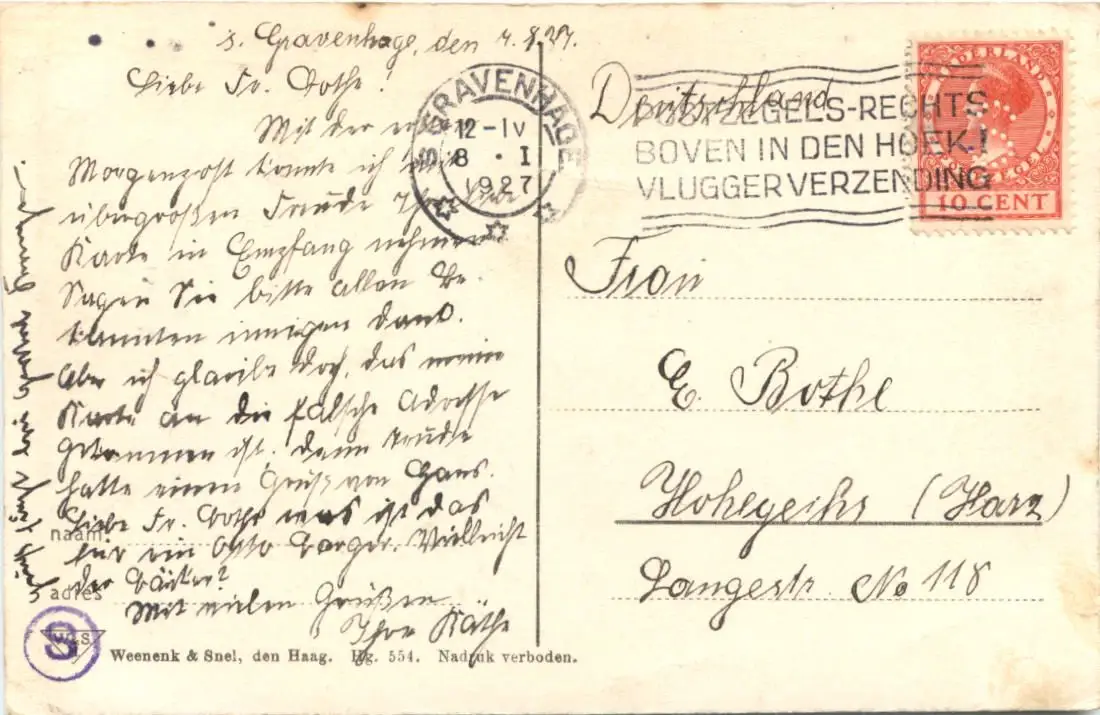 s. Gravenhage, den 7.8.27.
Liebe Fr. Bothe!
Mit der
Morgenpost konnte ich mit
übergroßen Freude Ihre
Karte in Empfang nehmen
Sagen Sie bitte allen Be-
kannten innigen Dank.
Aber ich glaube doch, das meine
Karte an die falsche Adresse
gekommen ist. denn Trude
hatte einen Gruß von Hans.
Liebe Fr. Bothe was ist das
für ein Otto Berger. Vielleicht
der Bäcker?
Mit vielen Grüßen
Ihre Käthe
naam
adres
S
W&S
Weenenk & Snel, den Haag. Hg. 554. Nadruk verboden.
'S GRAVENHAGE
12-IV
8 · I
1927
POSTZEGELS-RECHTS
BOVEN IN DEN HOEK!
VLUGGER VERZENDING
NEDERLAND
10 CENT
Deutschland
Frau
E. Bothe
Hohegeihs (Harz)
Langestr No 118